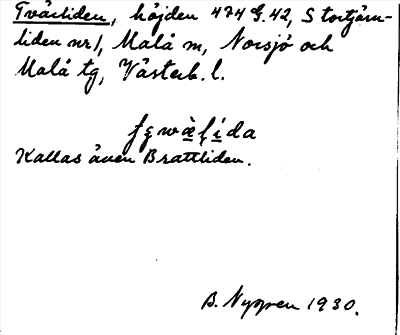 Tvärliden, höjden 474 G. 42, Stortjärn-
liden nr 1, Malå m, Norsjö och
Malå tg, Västerb. l.
Kallas även Brattliden.
B. Nyman 1930.